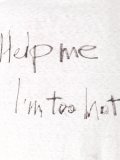 Help me
I'm too hot